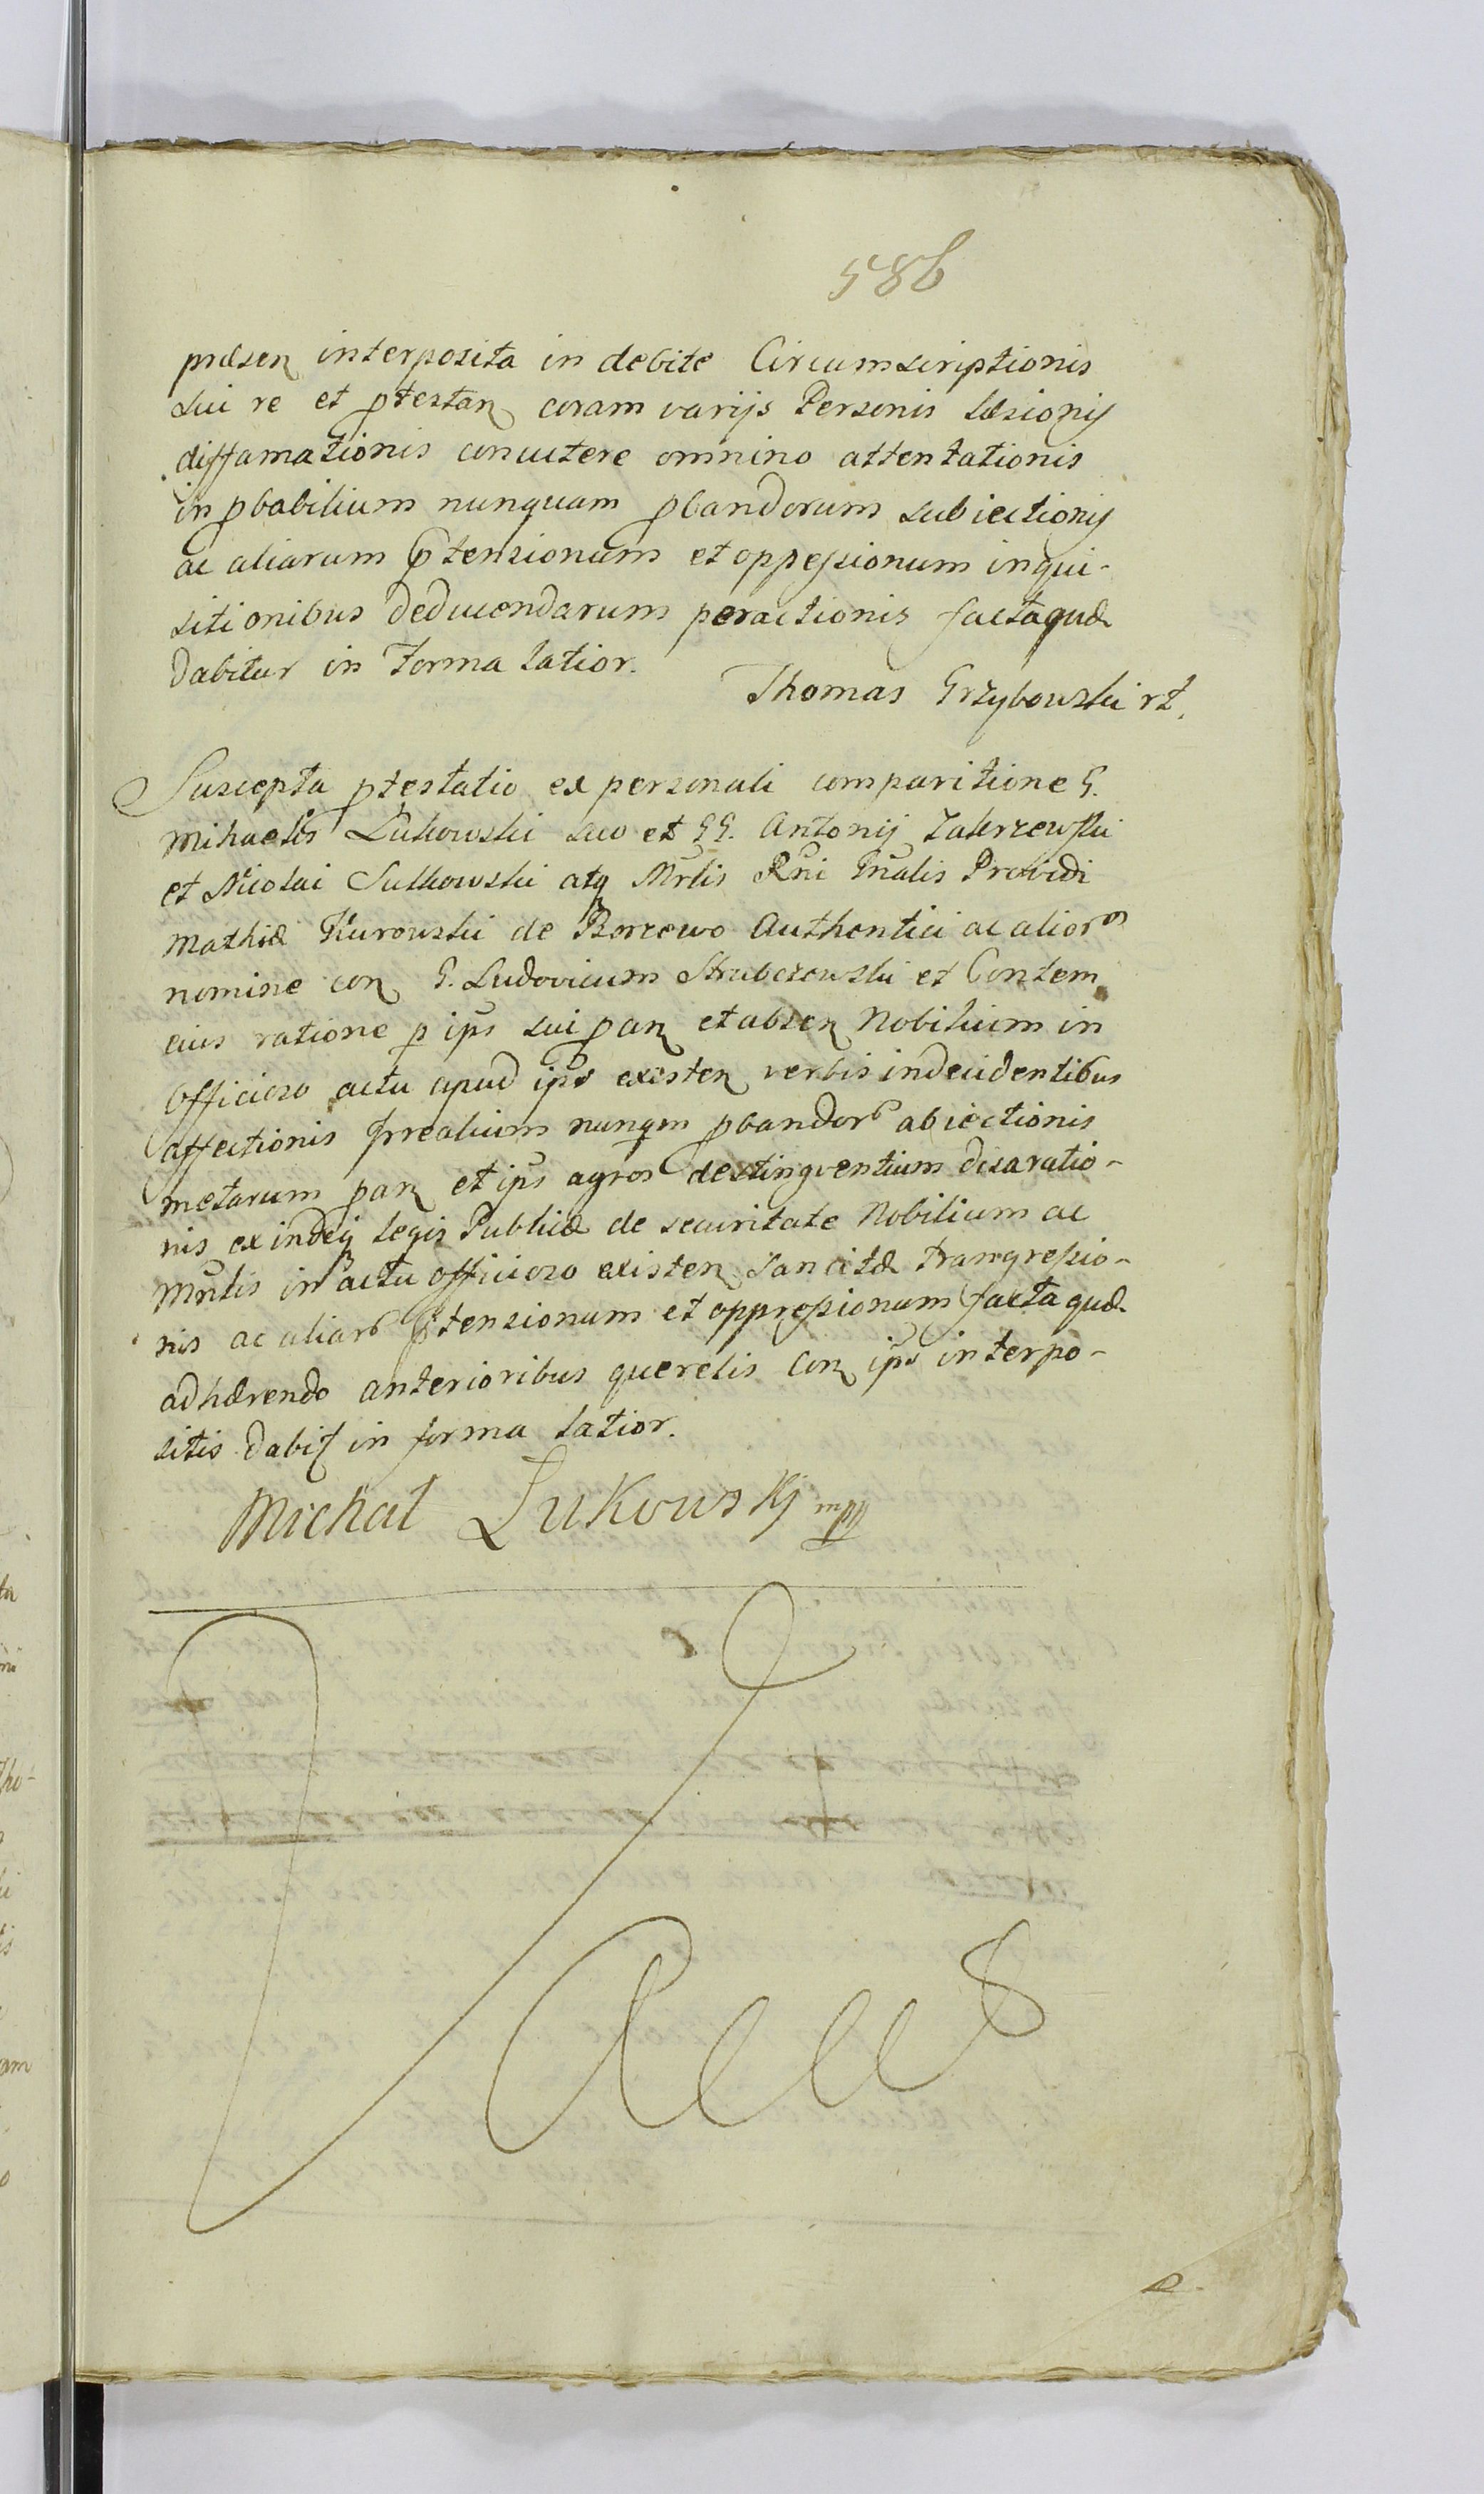 586
præsen interposita in debite Circumscriptionis
sui re et ptestan coram varijs Personis læsionis
diffamationis concutere omnino attentationis
in pbabilium nunquam pbandorum subiectionis
ac aliarum ptensionum et oppressionum inqui-
sitionibus deducendarum peractionis factaquæ
dabitur in Forma latior.
Thomas Grzybowski rt.
Suscepta ptestatio ex personali comparitione G.
Mihaelis Łukowski suo et GG. Antonij Zakrzewski
et Nicolai Sulkowski atq Mrlis Rni Gnalis Providi
Mathiæ Kurowski de Borzewo Authentici ac alior
nomine con G. Ludovicum Strubczewski et Contem
eius ratione p ips sui pan et absen Nobilium in
Officioso actu apud ips existen verbis indecidentibus
affectionis irrealium nunqm pbandor abiectionis
metarum pan et ips agros destingventium disaratio-
nis exindeq legis Publicæ de securitate Nobilium ac
Mrlis in actu officioso existen Sancitæ transgressio-
nis ac aliar ptensionum et oppressionum factaquæ
adhærendo anterioribus querelis con ips interpo-
sitis dabit in forma latior.
Michał Łukowski mpp